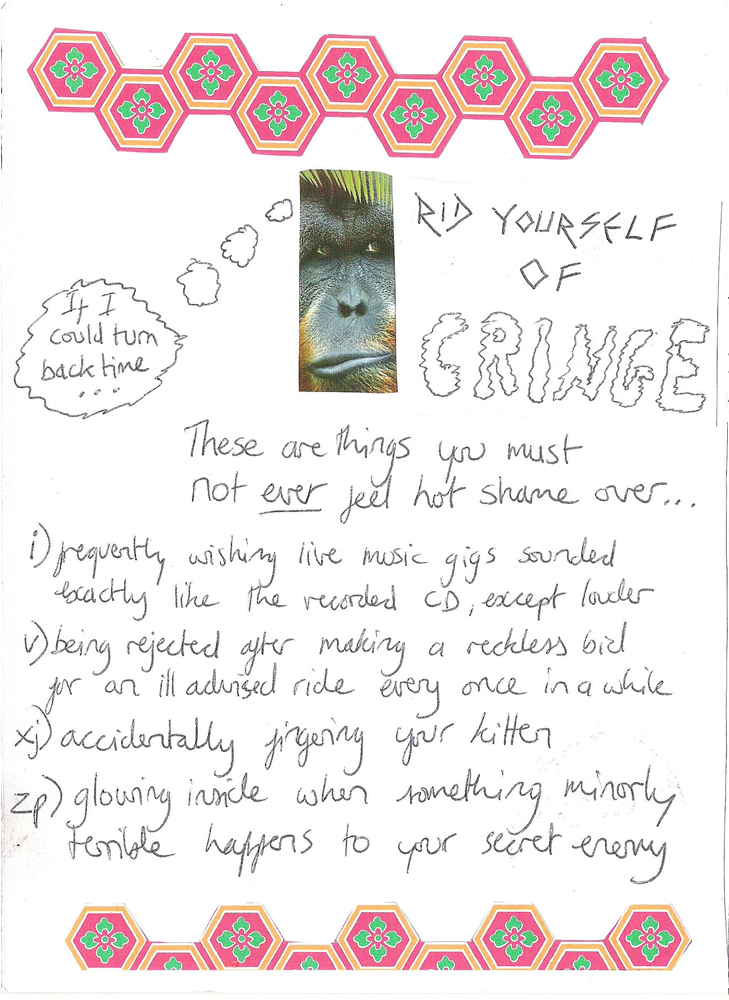 RID YOURSELF
OF
CRINGE
If I
could turn
back time
...
These are things you must
not ever feel hot shame over...
i) frequently wishing live music gigs sounded
exactly like the recorded CD, except louder
v) being rejected after making a reckless bid
for an ill advised ride every once in a while
xj) accidentally fingering your kitten
zp) glowing inside when something minorly
terrible happens to your secret enemy